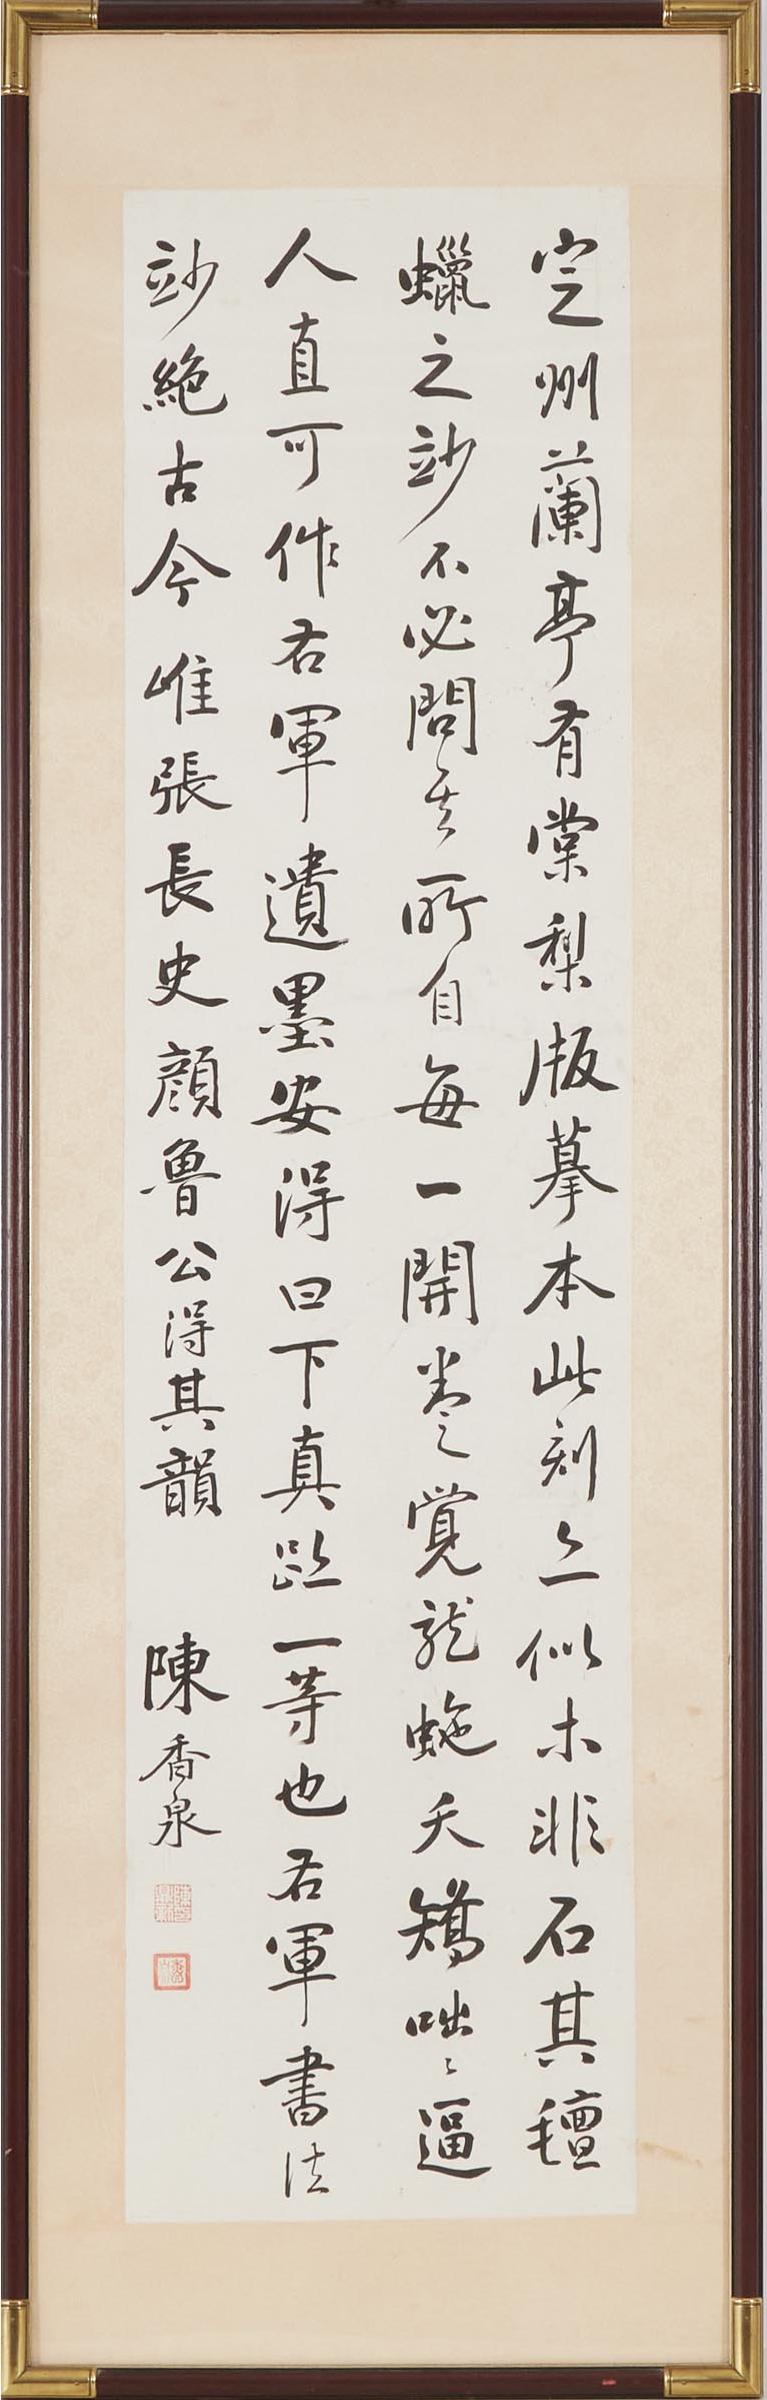 定州蘭亭有棠梨版摹本此刻亦似木非石其氊
蠟之竗不必問其所自每一開卷覺龍蛇夭矯咄々逼
人直可作右軍遺墨安得曰下真跡一等也右軍書法
竗絶古今唯張長史顔魯公得其韻
陳香泉